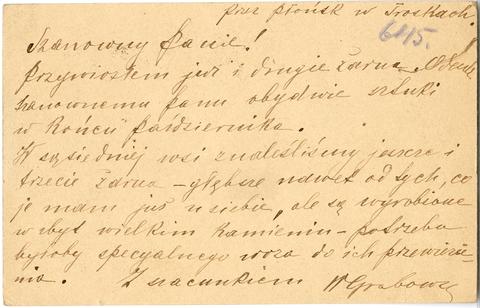 przez Płońsk w Troskach.
6415.
Szanowny Panie!
Przywiozłem już i drugie żarna. Odeślę
szanownemu Panu obydwie sztuki
w końcu Października.
W sąsiedniej wsi znaleźliśmy jeszcze i
trzecie żarna – głębsze nawet od tych, co
je mam już u siebie, ale są wyrobione
w zbyt wielkim kamieniu – potrzeba
byłoby specyalnego woza do ich przewiezie-
nia. Z szacunkiem W Grabows